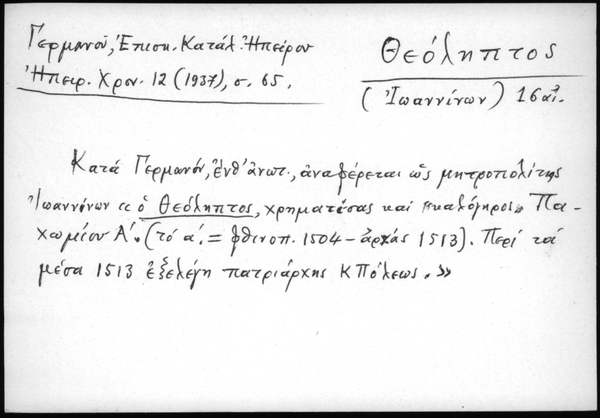 Γερμανοῦ, Ἐπισκ. Κατάλ. Ἠπείρου
Ἠπειρ. Χρον. 12 (1937), σ. 65.
Θεόληπτος
(Ἰωαννίνων) 16 αἰ.
Κατά Γερμανόν, ἔνθ' ἀνωτ., ἀναφέρεται ὡς μητροπολίτης
Ἰωαννίνων « ὁ Θεόληπτος, χρηματίσας καί «καλόγηρος» Πα-
χωμίου Α΄. (τό α΄. = φθινοπ. 1504 – ἀρχάς 1513). Περί τά
μέσα 1513 ἐξελέγη πατριάρχης ΚΠόλεως.»